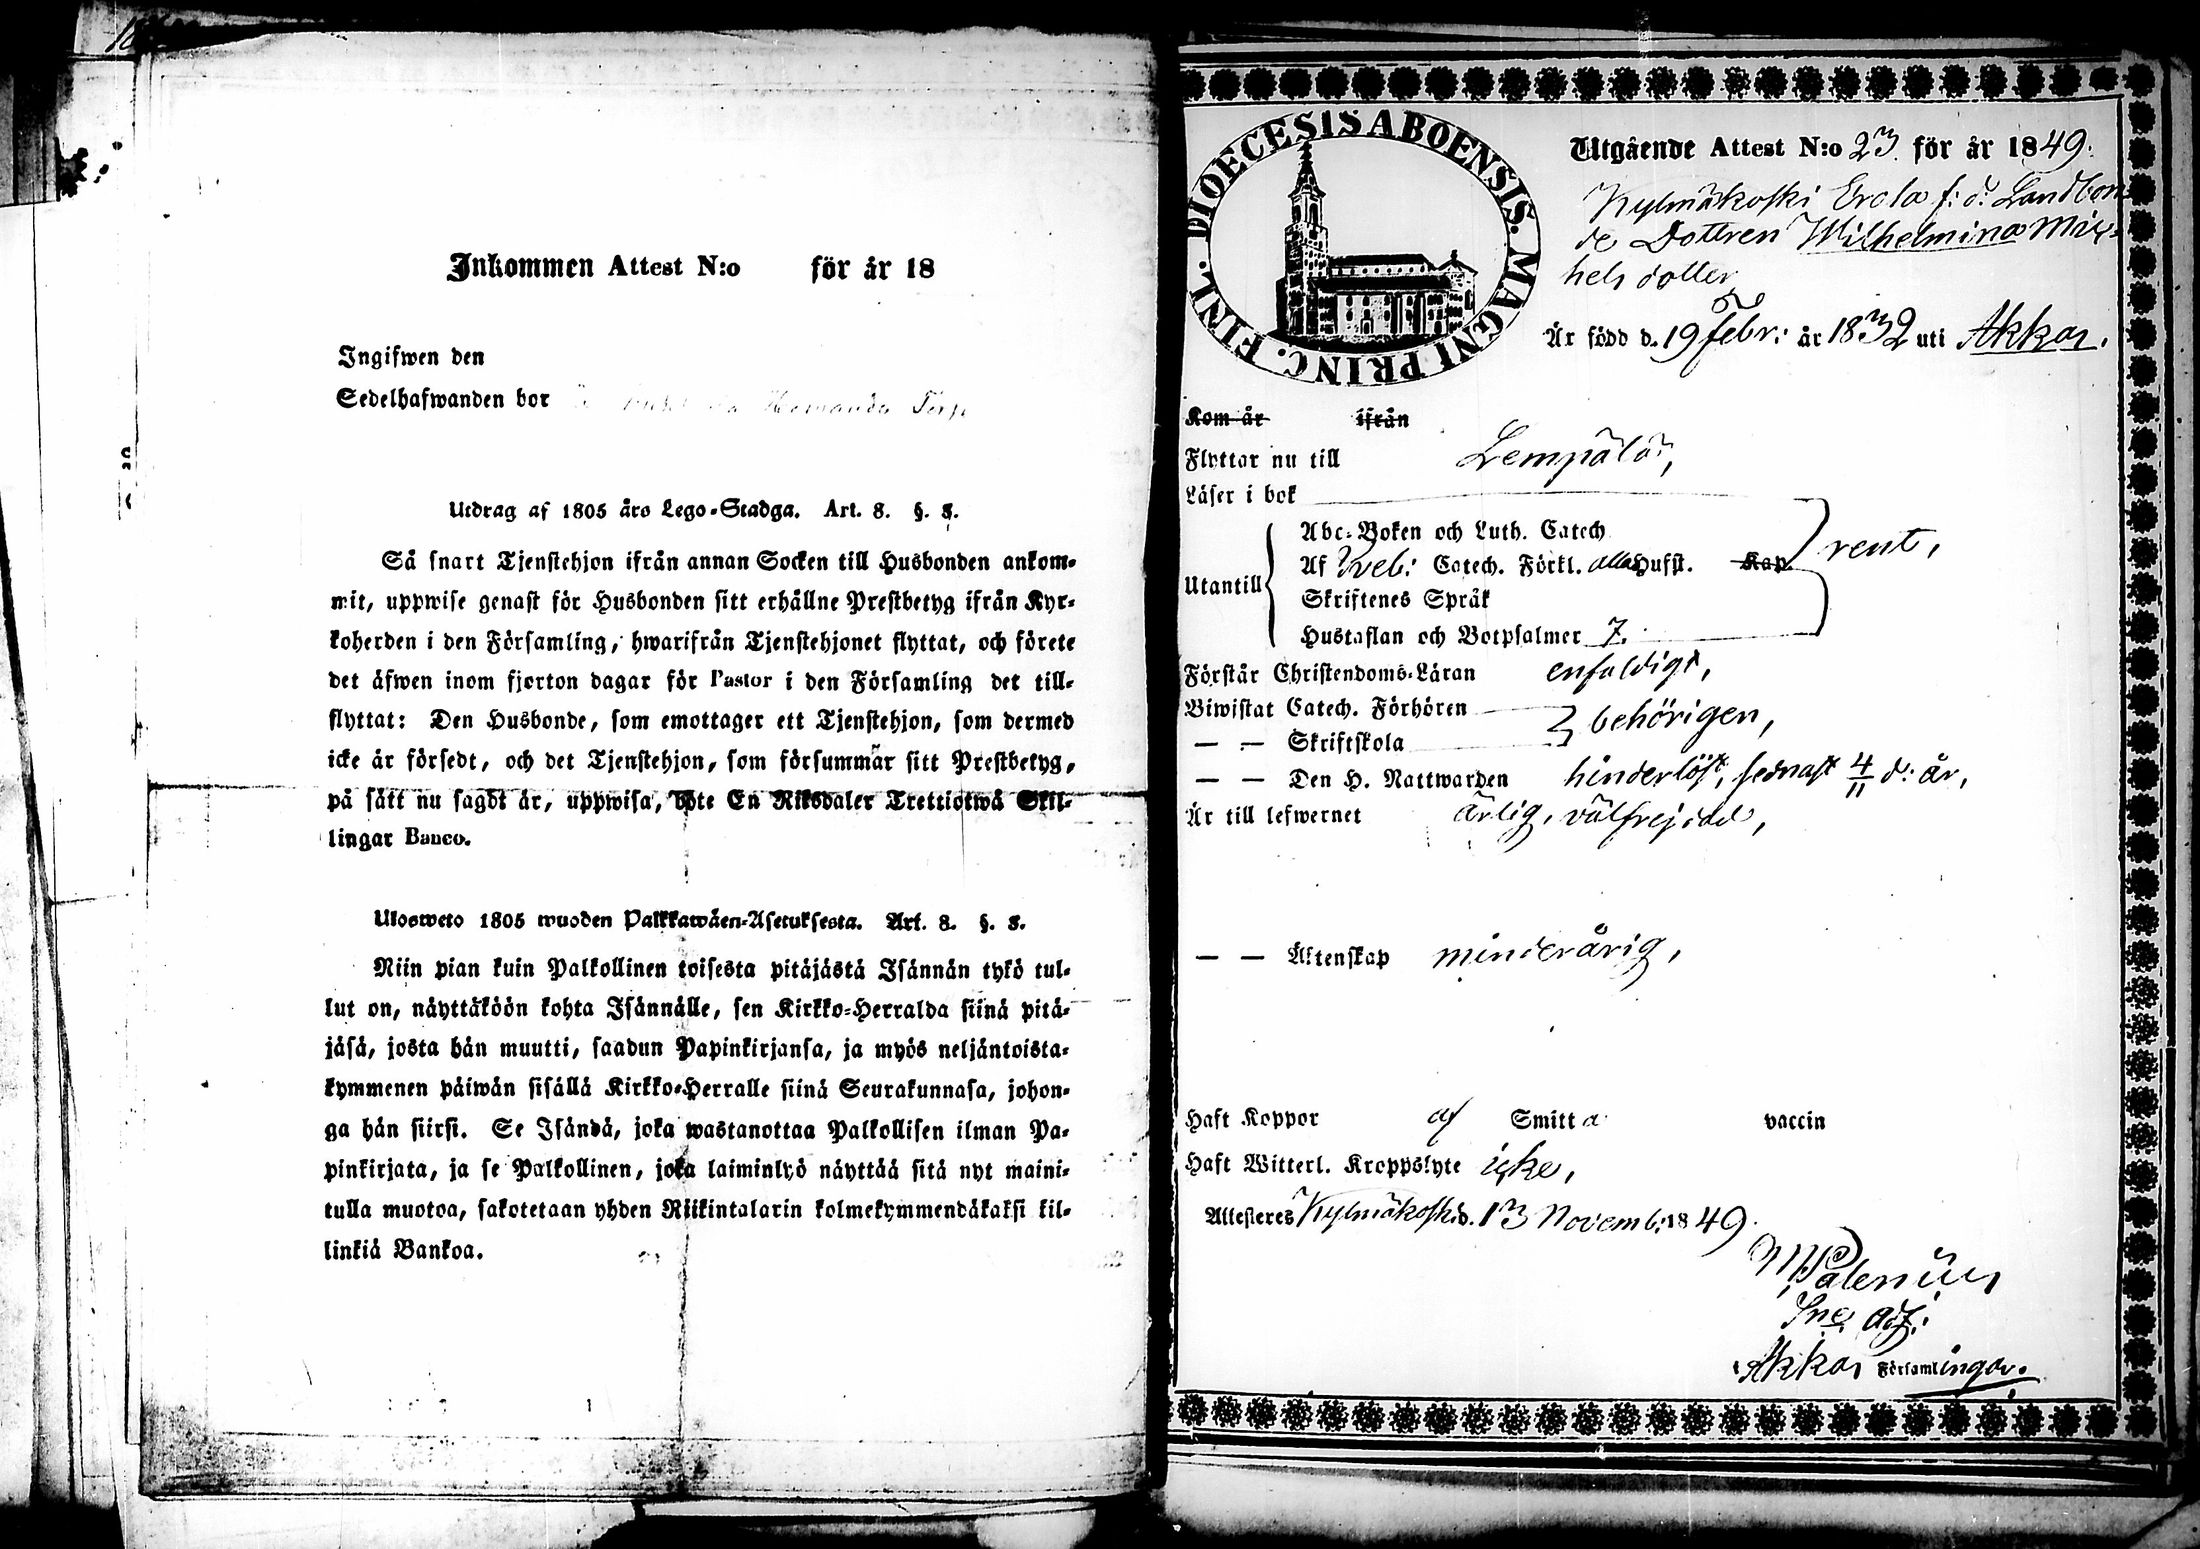 Inkommen Attest N:o för år 18
Ingifwen den
Sedelhafwanden bor
Utdrag af 1805 års Lego-Stadga. Art. 8. §. 8.
Så snart Tjenstehjon ifrån annan Socken till Husbonden ankom-
mit, uppwise genast för Husbonden sitt erhållne Prestbetyg ifrån Kyr-
koherden i den Församling, hwarifrån Tjenstehjonet flyttat, och förete
det äfwen inom fjorton dagar för Pastor i den Församling det till-
flyttat: Den Husbonde, som emottager ett Tjenstehjon, som dermed
icke är försedt, och det Tjenstehjon, som försummar sitt Prestbetyg,
på sätt nu sagdt är, uppwisa, böte En Riksdaler Trettiotwå Skil-
lingar Banco.
Ulosweto 1805 wuoden Palkkawäen-Asetuksesta. Art. 8. §. 8.
Niin pian kuin Palkollinen toisesta pitäjästä Isännän tykö tul-
lut on, näyttäköön kohta Isännälle, sen Kirkko-Herralda siinä pitä-
jäsä, josta hän muutti, saadun Papinkirjansa, ja myös neljäntoista-
kymmenen päiwän sisällä Kirkko-Herralle siinä Seurakunnasa, johon-
ga hän siirsi. Se Isändä, joka wastanottaa Palkollisen ilman Pa-
pinkirjata, ja se Palkollinen, joka laiminlyö näyttää sitä nyt maini-
tulla muotoa, sakotetaan yhden Riikintalarin kolmekymmendäkaksi kil-
linkiä Bankoa.
DIOECESIS ABOENSIS. MAGNI PRINC. FINL.
Utgående Attest N:o 23. för år 1849.
Kylmäkoski Erola f: d: Landbon-
de Dottren Wilhelmina Mic-
hels dotter
Är född d. 19 Febr: år 1832 uti Akkas.
Kom år ifrån
Flyttar nu till Lempälä,
Läser i bok
Utantill
Abc-Boken och Luth. Catech
Af Sveb: Catech. Förkl. alla Hufst. Kap
Skriftenes Språk
Hustaflan och Botpsalmer 7.
rent,
Förstår Christendoms-Läran enfaldigt,
Biwistat Catech. Förhören
— — Skriftskola
behörigen,
— — Den H. Nattwarden hinderlöst, sednast 4/11 d: år,
Är till lefwernet ärlig, välfrejdad,
— — Äktenskap minderårig,
Haft Koppor af Smitta vaccin
Haft Witterl. Kroppslyte icke,
Attesteres Kylmäkoski d. 13 Novemb: 1849.
M Palenius
Sne adj:
i Akkas Församlingar.